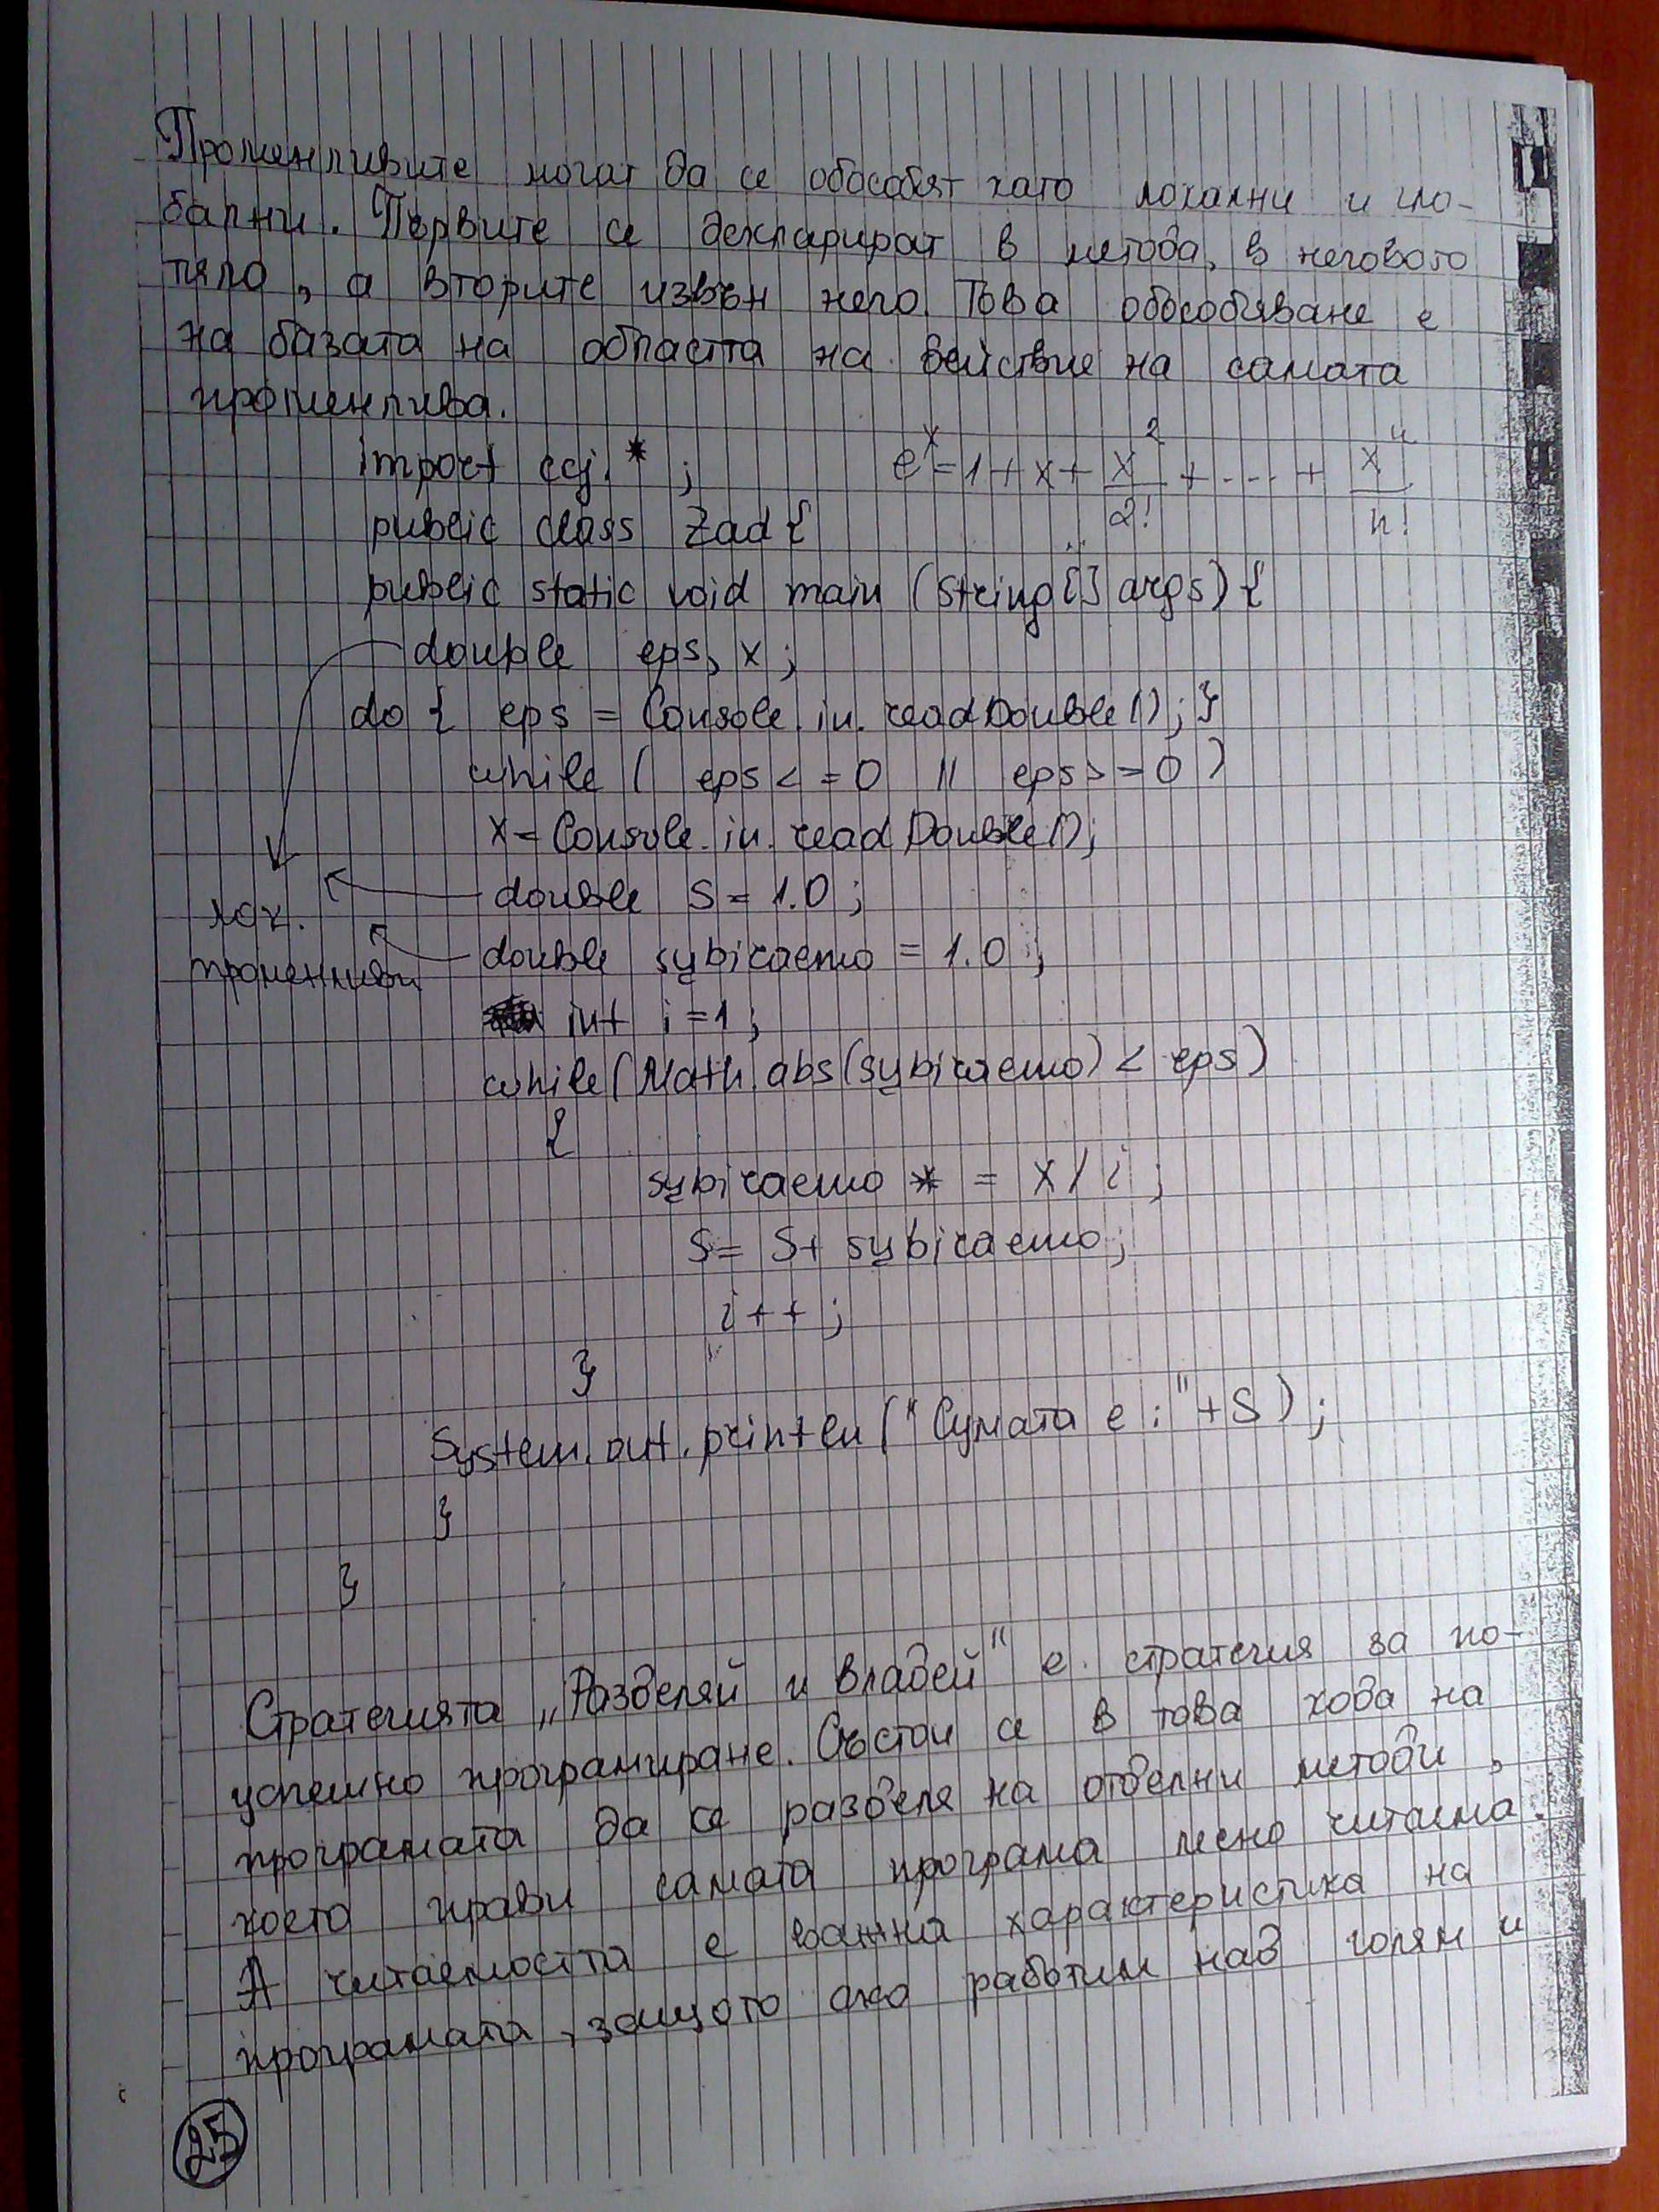 Променливите могат да се обособят като локални и гло-
бални. Първите се декларират в метода, в неговото
тяло, а вторите извън него. Това обособяване е
на базата на областта на действие на самата
променлива.
import ccj.*;
e^x = 1 + x + x^2/2! + ... + x^n/n!
public class Zad {
public static void main (String[] args) {
double eps, x;
do { eps = Console.in.readDouble(); }
while ( eps <= 0 || eps >= 0 )
x = Console.in.readDouble();
double S = 1.0;
лок.
double sybiraemo = 1.0;
променливи
int i = 1;
while (Math.abs(sybiraemo) < eps)
{
sybiraemo *= x / i;
S = S + sybiraemo;
i++;
}
System.out.println ("Сумата е: " + S);
}
}
Стратегията „Разделяй и владей" е стратегия за по-
успешно програмиране. Състои се в това кода на
програмата да се разделя на отделни методи,
което прави самата програма лесно читаема.
А читаемостта е важна характеристика на
програмата, защото ако работим над голям и
25